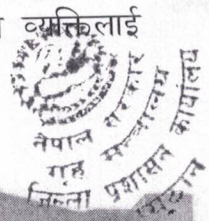 व्यक्तिलाई
नेपाल सरकार
गृह मन्त्रालय
जिल्ला प्रशासन कार्यालय